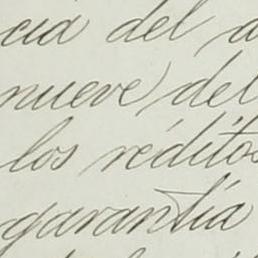 cia del
nueve) del
los réditos
garantía